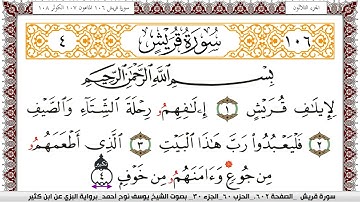 الجزء الثلاثون
سورة قريش ١٠٦ الماعون ١٠٧ الكوثر ١٠٨
١٠٦ سُورَةُ قُرَيْشٍ ٤
بِسْمِ اللَّهِ الرَّحْمَٰنِ الرَّحِيمِ
لِإِيلَٰفِ قُرَيْشٍ ١ إِۦلَٰفِهِمُۥ رِحْلَةَ ٱلشِّتَآءِ وَٱلصَّيْفِ
٢ فَلْيَعْبُدُوا۟ رَبَّ هَٰذَا ٱلْبَيْتِ ٣ ٱلَّذِىٓ أَطْعَمَهُمُۥ
مِن جُوعٍ وَءَامَنَهُمُۥ مِنْ خَوْفٍۭ ٤
سورة قريش الصفحة ٦٠٢ الحزب ٦٠ الجزء ٣٠ بصوت الشيخ يوسف نوح أحمد برواية البزي عن ابن كثير